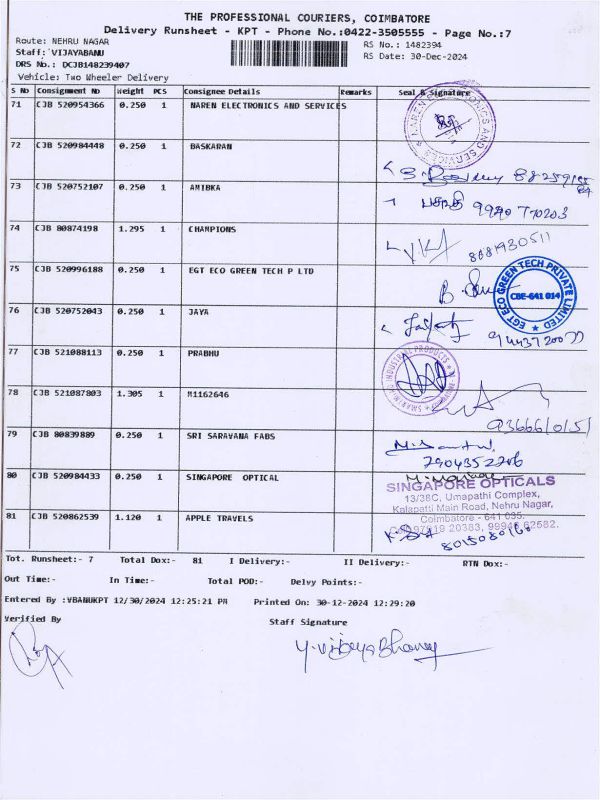 THE PROFESSIONAL COURIERS, COIMBATORE
Delivery Runsheet - KPT - Phone No.:0422-3505555 - Page No.:7
Route: NEHRU NAGAR
RS No.: 1482394
Staff: VIJAYABANU
RS Date: 30-Dec-2024
DRS No.: DCJB148239407
Vehicle: Two Wheeler Delivery
S No Consignment No Weight PCS Consignee Details Remarks Seal & Signature
71 CJB 520954366 0.250 1 NAREN ELECTRONICS AND SERVICES
NAREN ELECTRONICS AND SERVICES
72 CJB 520984448 0.250 1 BASKARAN
73 CJB 520752107 0.250 1 AMIBKA
74 CJB 80874198 1.295 1 CHAMPIONS
75 CJB 520996188 0.250 1 EGT ECO GREEN TECH P LTD
EGT ECO GREEN TECH PRIVATE LIMITED
CBE-641 014
76 CJB 520752043 0.250 1 JAYA
77 CJB 521088113 0.250 1 PRABHU
INDUSTRIAL PRODUCTS
78 CJB 521087803 1.305 1 M1162646
79 CJB 80839889 0.250 1 SRI SARAVANA FABS
7904352706
80 CJB 520984433 0.250 1 SINGAPORE OPTICAL
SINGAPORE OPTICALS
13/38C, Umapathi Complex,
Kalapatti Main Road, Nehru Nagar,
Coimbatore - 641 035.
81 CJB 520862539 1.120 1 APPLE TRAVELS
Tot. Runsheet:- 7 Total Dox:- 81 I Delivery:- II Delivery:- RTN Dox:-
Out Time:- In Time:- Total POD:- Delvy Points:-
Entered By :VBANUKPT 12/30/2024 12:25:21 PM Printed On: 30-12-2024 12:29:20
Verified By Staff Signature
Y.VijayaBhanu